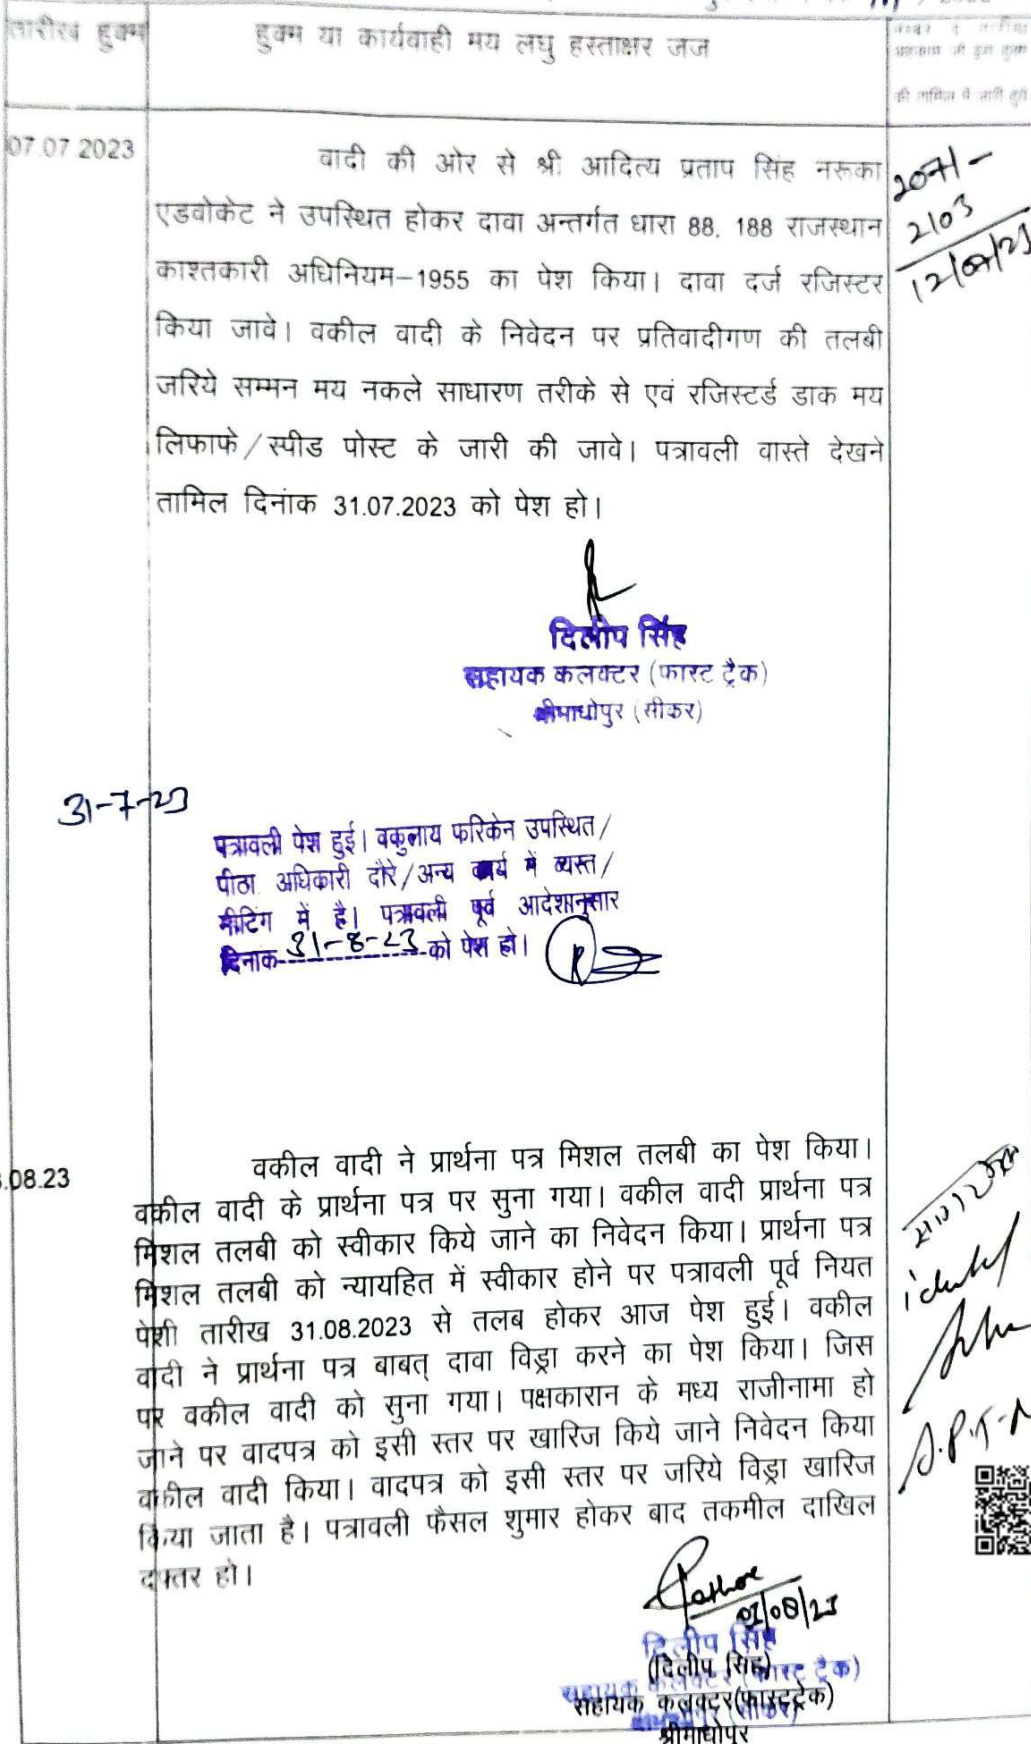 तारीख हुक्म
हुक्म या कार्यवाही मय लघु हस्ताक्षर जज
की तामिल में जारी हुए
07.07.2023
वादी की ओर से श्री आदित्य प्रताप सिंह नरूका
एडवोकेट ने उपस्थित होकर दावा अन्तर्गत धारा 88, 188 राजस्थान
काश्तकारी अधिनियम–1955 का पेश किया। दावा दर्ज रजिस्टर
किया जावे। वकील वादी के निवेदन पर प्रतिवादीगण की तलबी
जरिये सम्मन मय नकले साधारण तरीके से एवं रजिस्टर्ड डाक मय
लिफाफे/स्पीड पोस्ट के जारी की जावे। पत्रावली वास्ते देखने
तामिल दिनांक 31.07.2023 को पेश हो।
2071-
2103
दिलीप सिंह
सहायक कलक्टर (फास्ट ट्रैक)
श्रीमाधोपुर (सीकर)
31-7-23
पत्रावली पेश हुई। वकुलाय फरिकेन उपस्थित/
पीठा अधिकारी दौरे/अन्य कार्य में व्यस्त/
मीटिंग में है। पत्रावली पूर्व आदेशानुसार
दिनांक 31-8-23 को पेश हो।
.08.23
वकील वादी ने प्रार्थना पत्र मिशल तलबी का पेश किया।
वकील वादी के प्रार्थना पत्र पर सुना गया। वकील वादी प्रार्थना पत्र
मिशल तलबी को स्वीकार किये जाने का निवेदन किया। प्रार्थना पत्र
मिशल तलबी को न्यायहित में स्वीकार होने पर पत्रावली पूर्व नियत
पेशी तारीख 31.08.2023 से तलब होकर आज पेश हुई। वकील
वादी ने प्रार्थना पत्र बाबत् दावा विड्रा करने का पेश किया। जिस
पर वकील वादी को सुना गया। पक्षकारान के मध्य राजीनामा हो
जाने पर वादपत्र को इसी स्तर पर खारिज किये जाने निवेदन किया
वकील वादी किया। वादपत्र को इसी स्तर पर जरिये विड्रा खारिज
किया जाता है। पत्रावली फैसल शुमार होकर बाद तकमील दाखिल
दफ्तर हो।
दिलीप सिंह
(दिलीप सिंह)
सहायक कलक्टर(फास्टट्रेक)
श्रीमाधोपुर